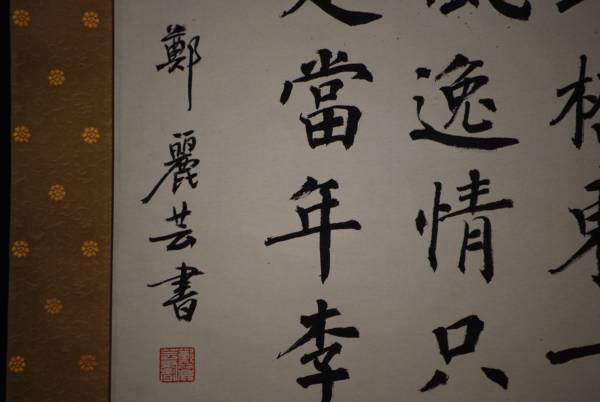 東一
逸情只
當年李
鄭麗芸書